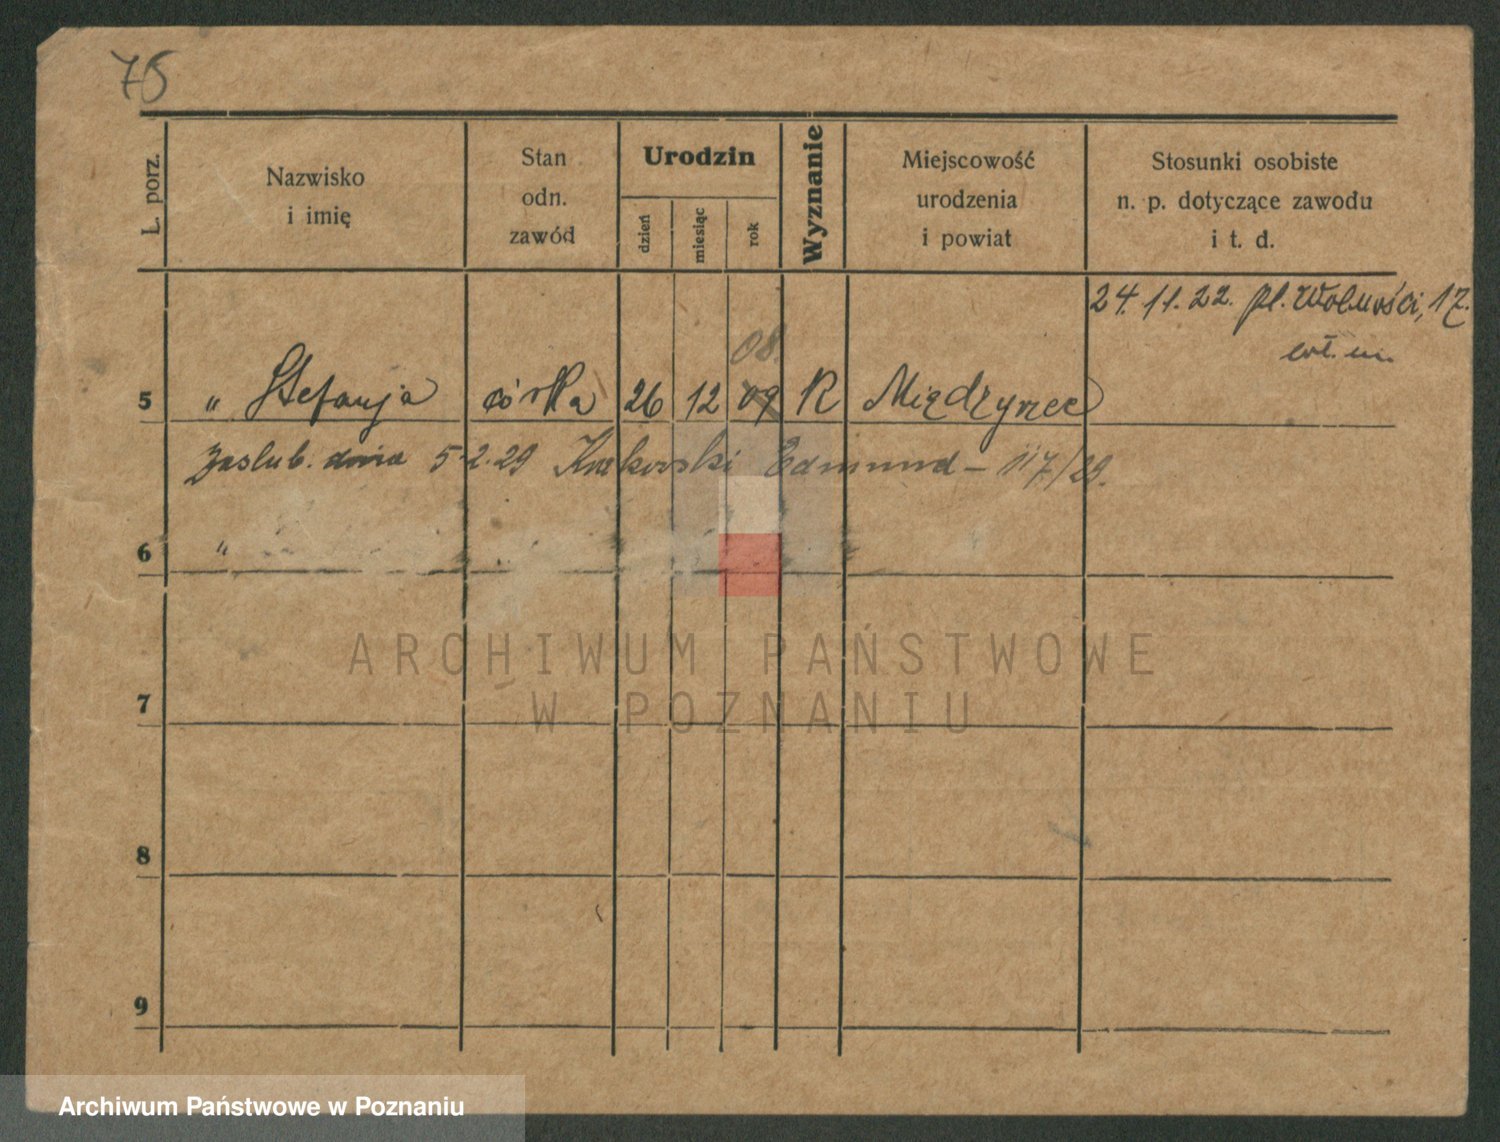 75
L. porz.
Nazwisko
i imię
Stan
odn.
zawód
Urodzin
dzień
miesiąc
rok
Wyznanie
Miejscowość
urodzenia
i powiat
Stosunki osobiste
n. p. dotyczące zawodu
i t. d.
24. 11. 22. pl. Wolności, 17.
08.
5 " Stefanja córka 26 12 09 R Międzyrzec
zaslub. dnia 5.2.29 Edmund – 117/29.
6 "
7
8
9
ARCHIWUM PAŃSTWOWE
W POZNANIU
Archiwum Państwowe w Poznaniu